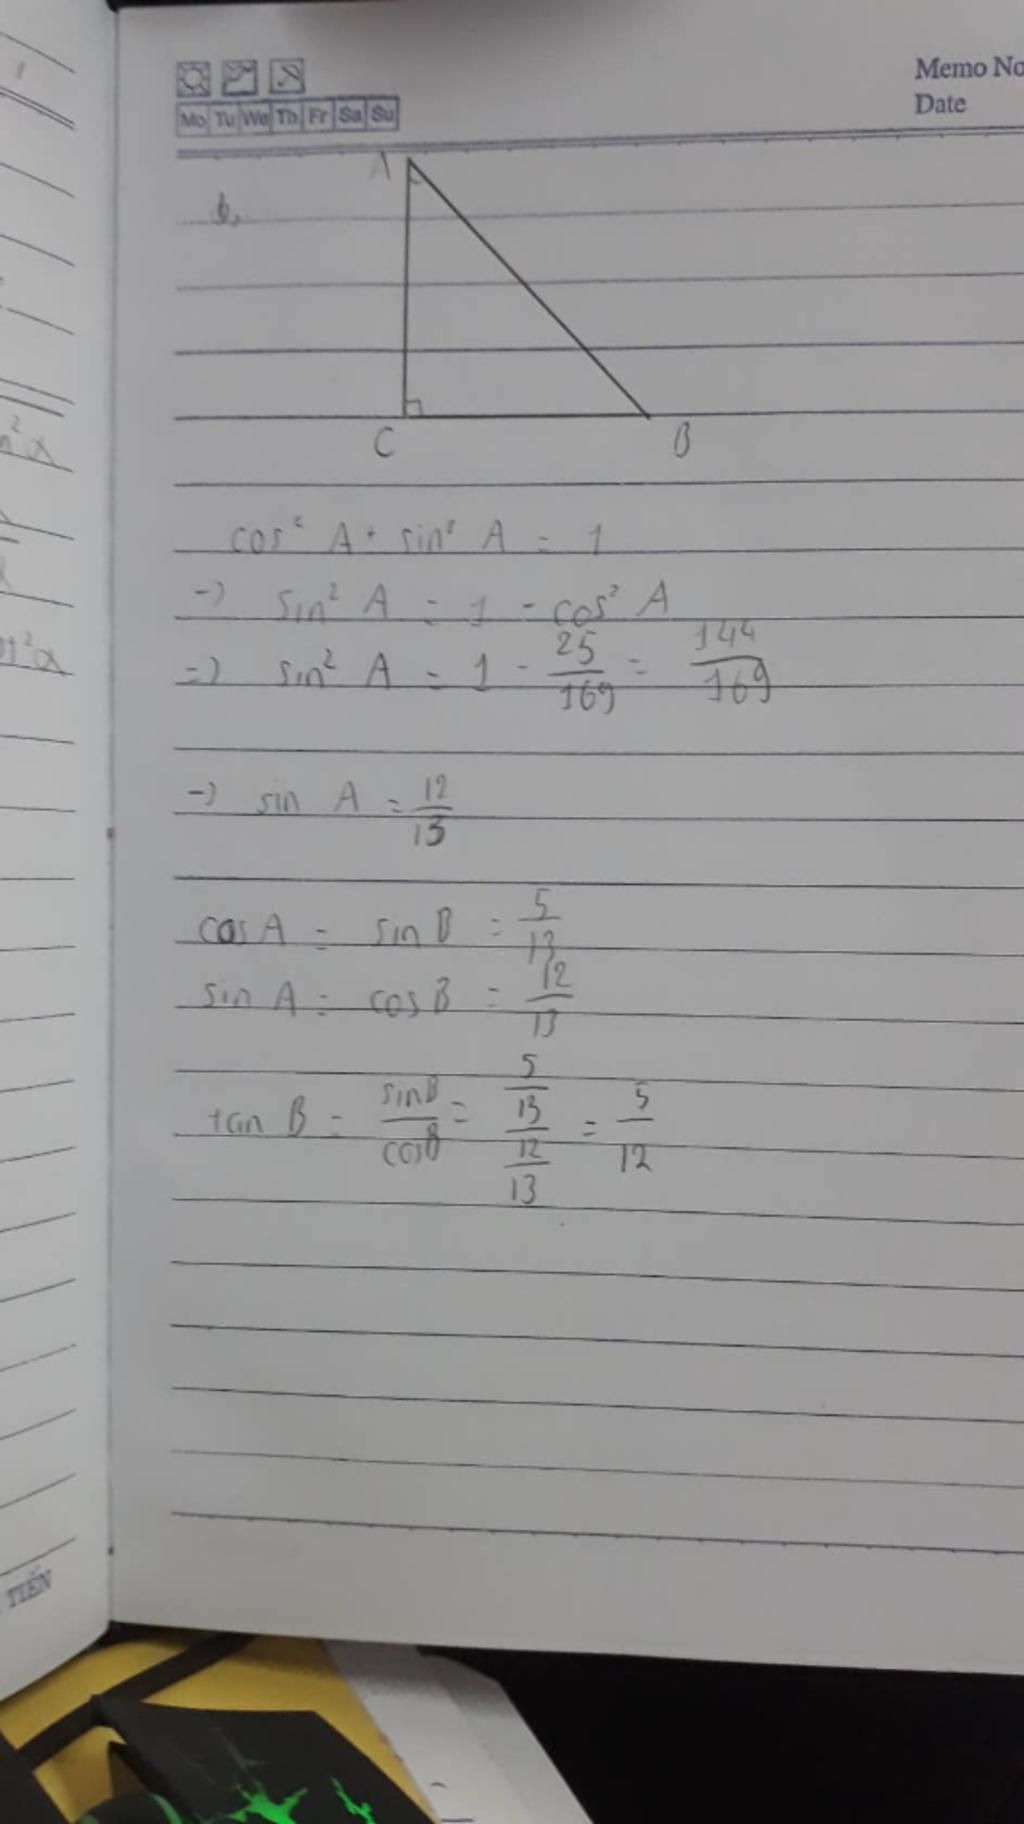 Memo No
Date
Mo Tu We Th Fr Sa Su
A
b,
C
B
cos² A + sin² A = 1
=) sin² A = 1 - cos² A
=) sin² A = 1 - 25/169 = 144/169
=) sin A = 12/13
cos A = sin B = 5/13
sin A = cos B = 12/13
tan B = sin B/cos B = 5/13/12/13 = 5/12
TIẾN